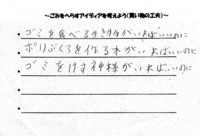 ～ごみをへらすアイディアを考えよう(買い物の工夫)～
ゴミを食べる生き物がいればいいのに
ポリぶくろを作る木がいればいいのに
ゴミをけす神様がいればいいのに